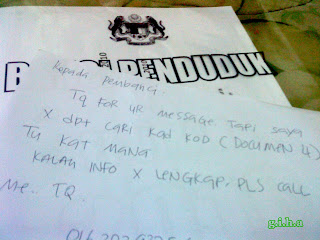 PENDUDUK
Kepada Pembanci..
TQ FOR UR MESSAGE TAPI SAYA
X dpt CARI KAD KOD (DOCUMEN 4)
TU KAT MANA
KALAU INFO X LENGKAP, PLS CALL
ME.. TQ.
g.i.h.a